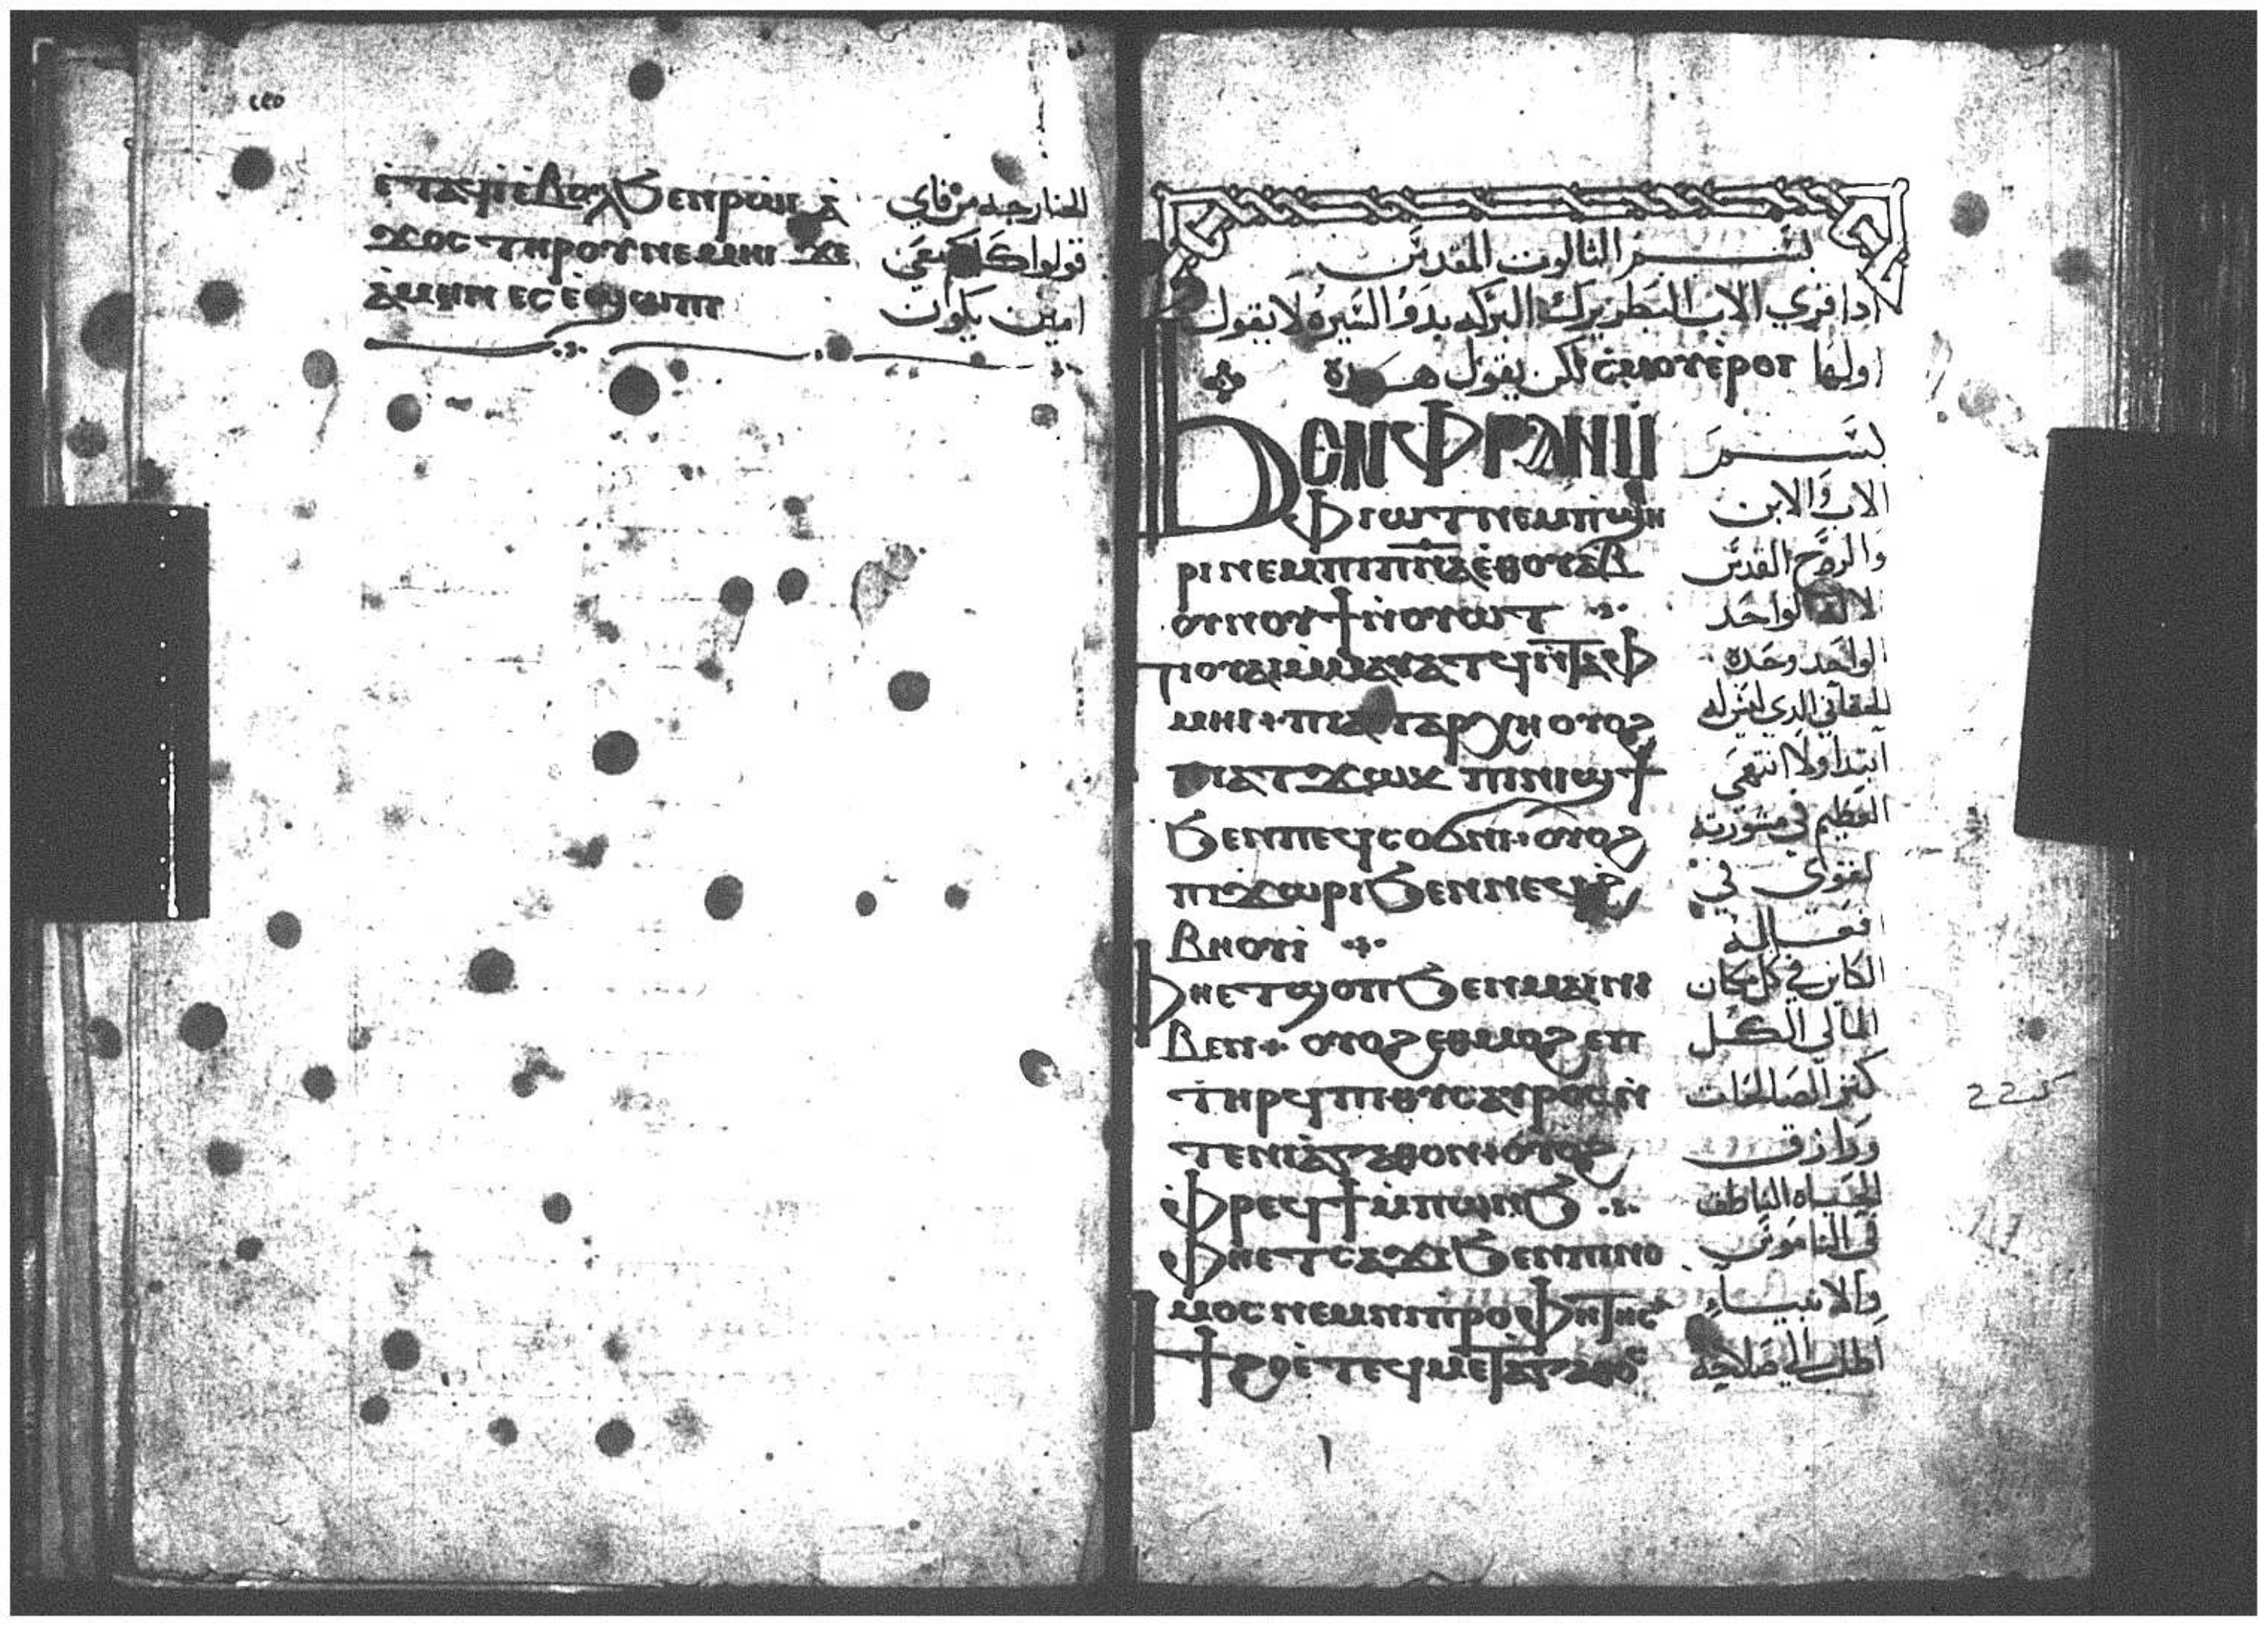 ⲉⲧⲁϥⲓⲉⲃⲟⲗ ϧⲉⲛⲣⲱⲓ ⲁ
الخارجه من فاي
ϫⲟⲥ ⲧⲏⲣⲟⲩ ⲛⲉⲙⲏⲓ ϫⲉ
قولوا
ⲁⲙⲏⲛ ⲉⲥⲉϣⲱⲡⲓ
امين يكون
بسم الثالوث المقدس
ادا قري الاب البطريرك البركه بدو السيره لا يقول
اولها ⲥⲙⲟⲩ ⲉⲣⲟⲓ لكن يقول
ϦⲈⲚ ⲪⲢⲀⲚ Ⲙ
بسم
ⲫⲓⲱⲧ ⲛⲉⲙ ⲡϣⲏ
الاب والابن
ⲣⲓ ⲛⲉⲙ ⲡⲓⲡⲛⲁ ⲉⲑⲟⲩⲁⲃ
والروح القدس
ⲟⲩⲛⲟⲩϯ ⲛⲟⲩⲱⲧ
لواحد
ⲡⲓⲟⲩⲁⲓ ⲙⲙⲁⲩⲁⲧϥ ⲛⲧⲁⲫ
الواحد وحده
ⲙⲏⲓ ⲟⲩⲟϩ
الحقاني الدي ليس له
ⲡⲓⲁⲧϫⲱⲕ ⲡⲓⲛⲓϣϯ
ابتدا ولا انتهى
ϧⲉⲛ ⲡⲉϥⲥⲟϭⲛⲓ ⲟⲩⲟϩ
العظيم في مشورته
ⲡⲓϫⲱⲣⲓ ϧⲉⲛ ⲛⲉϥϩ
لقوى في
ⲃⲏⲟⲩⲓ
افعاله
ⲫⲏⲉⲧϣⲟⲡ ϧⲉⲛ ⲙⲁⲓ ⲛⲓ
الكاين في كل مكان
ⲃⲉⲛ ⲟⲩⲟϩ ⲉⲑⲙⲟϩ ⲉⲡ
المالي الكل
ⲧⲏⲣϥ ⲡⲓⲑⲩⲥⲁⲩⲣⲟⲥ ⲛ
كنز الصالحات
ⲧⲉ ⲛⲓⲁⲅⲁⲑⲟⲛ ⲟⲩⲟϩ
ورازق
ⲫⲣⲉϥϯ ⲙⲡⲱⲛϧ
الحياه الناطق
ⲫⲏⲉⲧⲥⲁϫⲓ ϧⲉⲛ ⲡⲓⲛⲟ
في الناموس
ⲙⲟⲥ ⲛⲉⲙ ⲛⲓⲡⲣⲟⲫⲏⲧⲏⲥ
والانبياء
ϯϩⲟ ⲉⲧⲉϥⲙⲉⲧⲁⲅⲁⲑⲟⲥ
اطلب الي صلاحه